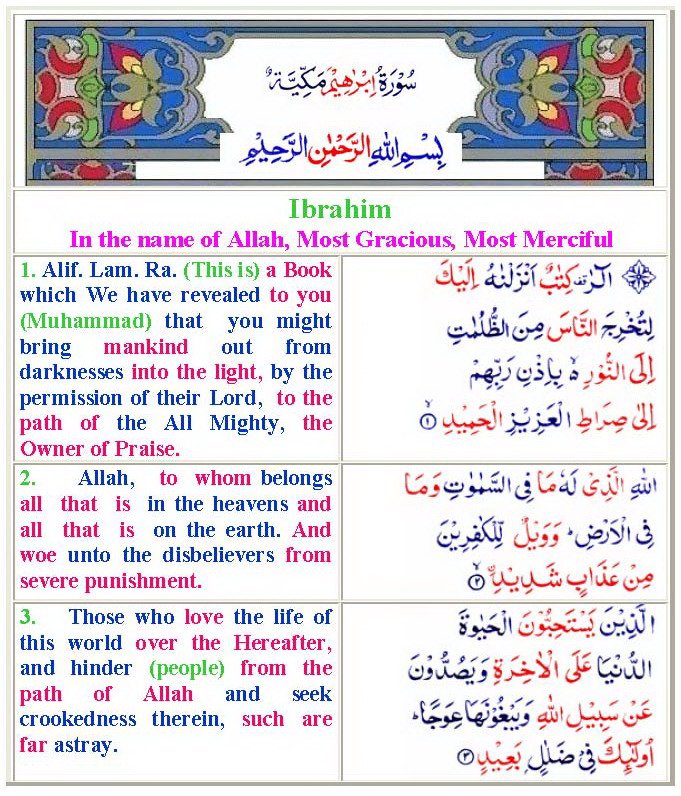 سُوْرَةُ اِبْرٰهِيْمَ مَكِّيَّةٌ
بِسْمِ اللهِ الرَّحْمٰنِ الرَّحِيْمِ
Ibrahim
In the name of Allah, Most Gracious, Most Merciful
1. Alif. Lam. Ra. (This is) a Book
which We have revealed to you
(Muhammad) that you might
bring mankind out from
darknesses into the light, by the
permission of their Lord, to the
path of the All Mighty, the
Owner of Praise.
الٓرٰ كِتٰبٌ اَنْزَلْنٰهُ اِلَيْكَ
لِتُخْرِجَ النَّاسَ مِنَ الظُّلُمٰتِ
اِلَى النُّوْرِ ۙ بِاِذْنِ رَبِّهِمْ
اِلٰى صِرَاطِ الْعَزِيْزِ الْحَمِيْدِ ۙ﴿۱﴾
2. Allah, to whom belongs
all that is in the heavens and
all that is on the earth. And
woe unto the disbelievers from
severe punishment.
اللهِ الَّذِىْ لَهٗ مَا فِى السَّمٰوٰتِ وَمَا
فِى الْاَرْضِ ؕ وَوَيْلٌ لِّلْكٰفِرِيْنَ
مِنْ عَذَابٍ شَدِيْدِۨ ۙ﴿۲﴾
3. Those who love the life of
this world over the Hereafter,
and hinder (people) from the
path of Allah and seek
crookedness therein, such are
far astray.
الَّذِيْنَ يَسْتَحِبُّوْنَ الْحَيٰوةَ
الدُّنْيَا عَلَى الْاٰخِرَةِ وَيَصُدُّوْنَ
عَنْ سَبِيْلِ اللهِ وَيَبْغُوْنَهَا عِوَجًا ؕ
اُولٰٓئِكَ فِىْ ضَلٰلٍۭ بَعِيْدٍ ﴿۳﴾